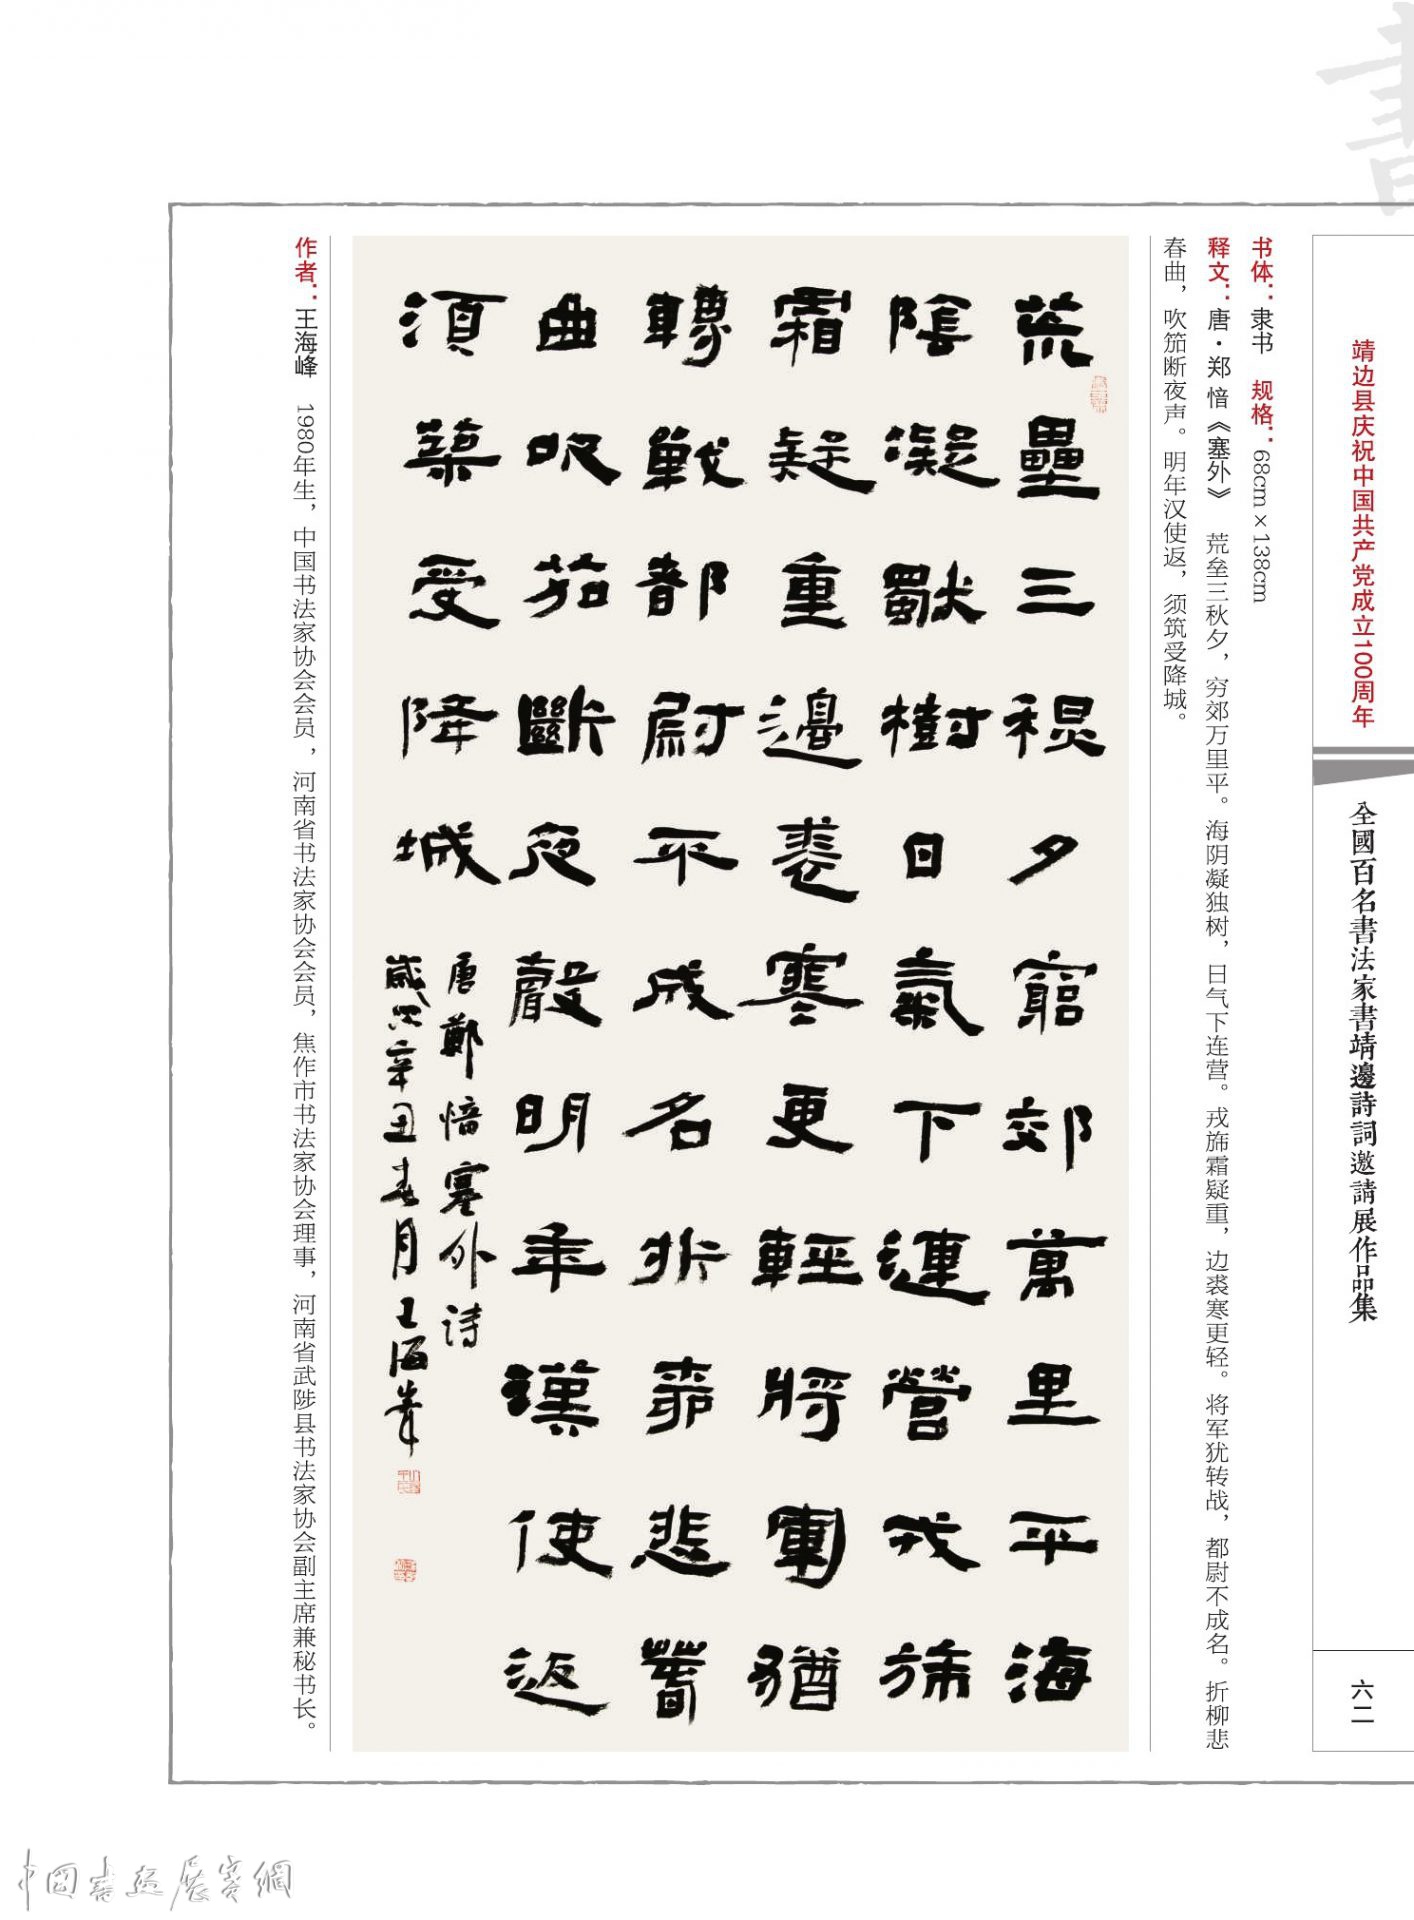 靖边县庆祝中国共产党成立100周年
全國百名書法家書靖邊詩詞邀請展作品集
六二
书体：隶书　规格：68cm×138cm
释文：唐·郑愔《塞外》　荒垒三秋夕，穷郊万里平。海阴凝独树，日气下连营。戎旆霜疑重，边裘寒更轻。将军犹转战，都尉不成名。折柳悲
春曲，吹笳断夜声。明年汉使返，须筑受降城。
荒壘三秋夕窮郊萬里平海
陰凝獸樹日氣下連營戎旆
霜疑重邊裘寒更輕將軍猶
轉戰都尉不成名折柳悲春
曲吹笳斷夜聲明年漢使返
須築受降城
唐鄭愔塞外詩
歲次辛丑春月王海峯
作者：王海峰　1980年生，中国书法家协会会员，河南省书法家协会会员，焦作市书法家协会理事，河南省武陟县书法家协会副主席兼秘书长。
書
中國書畫展賽網